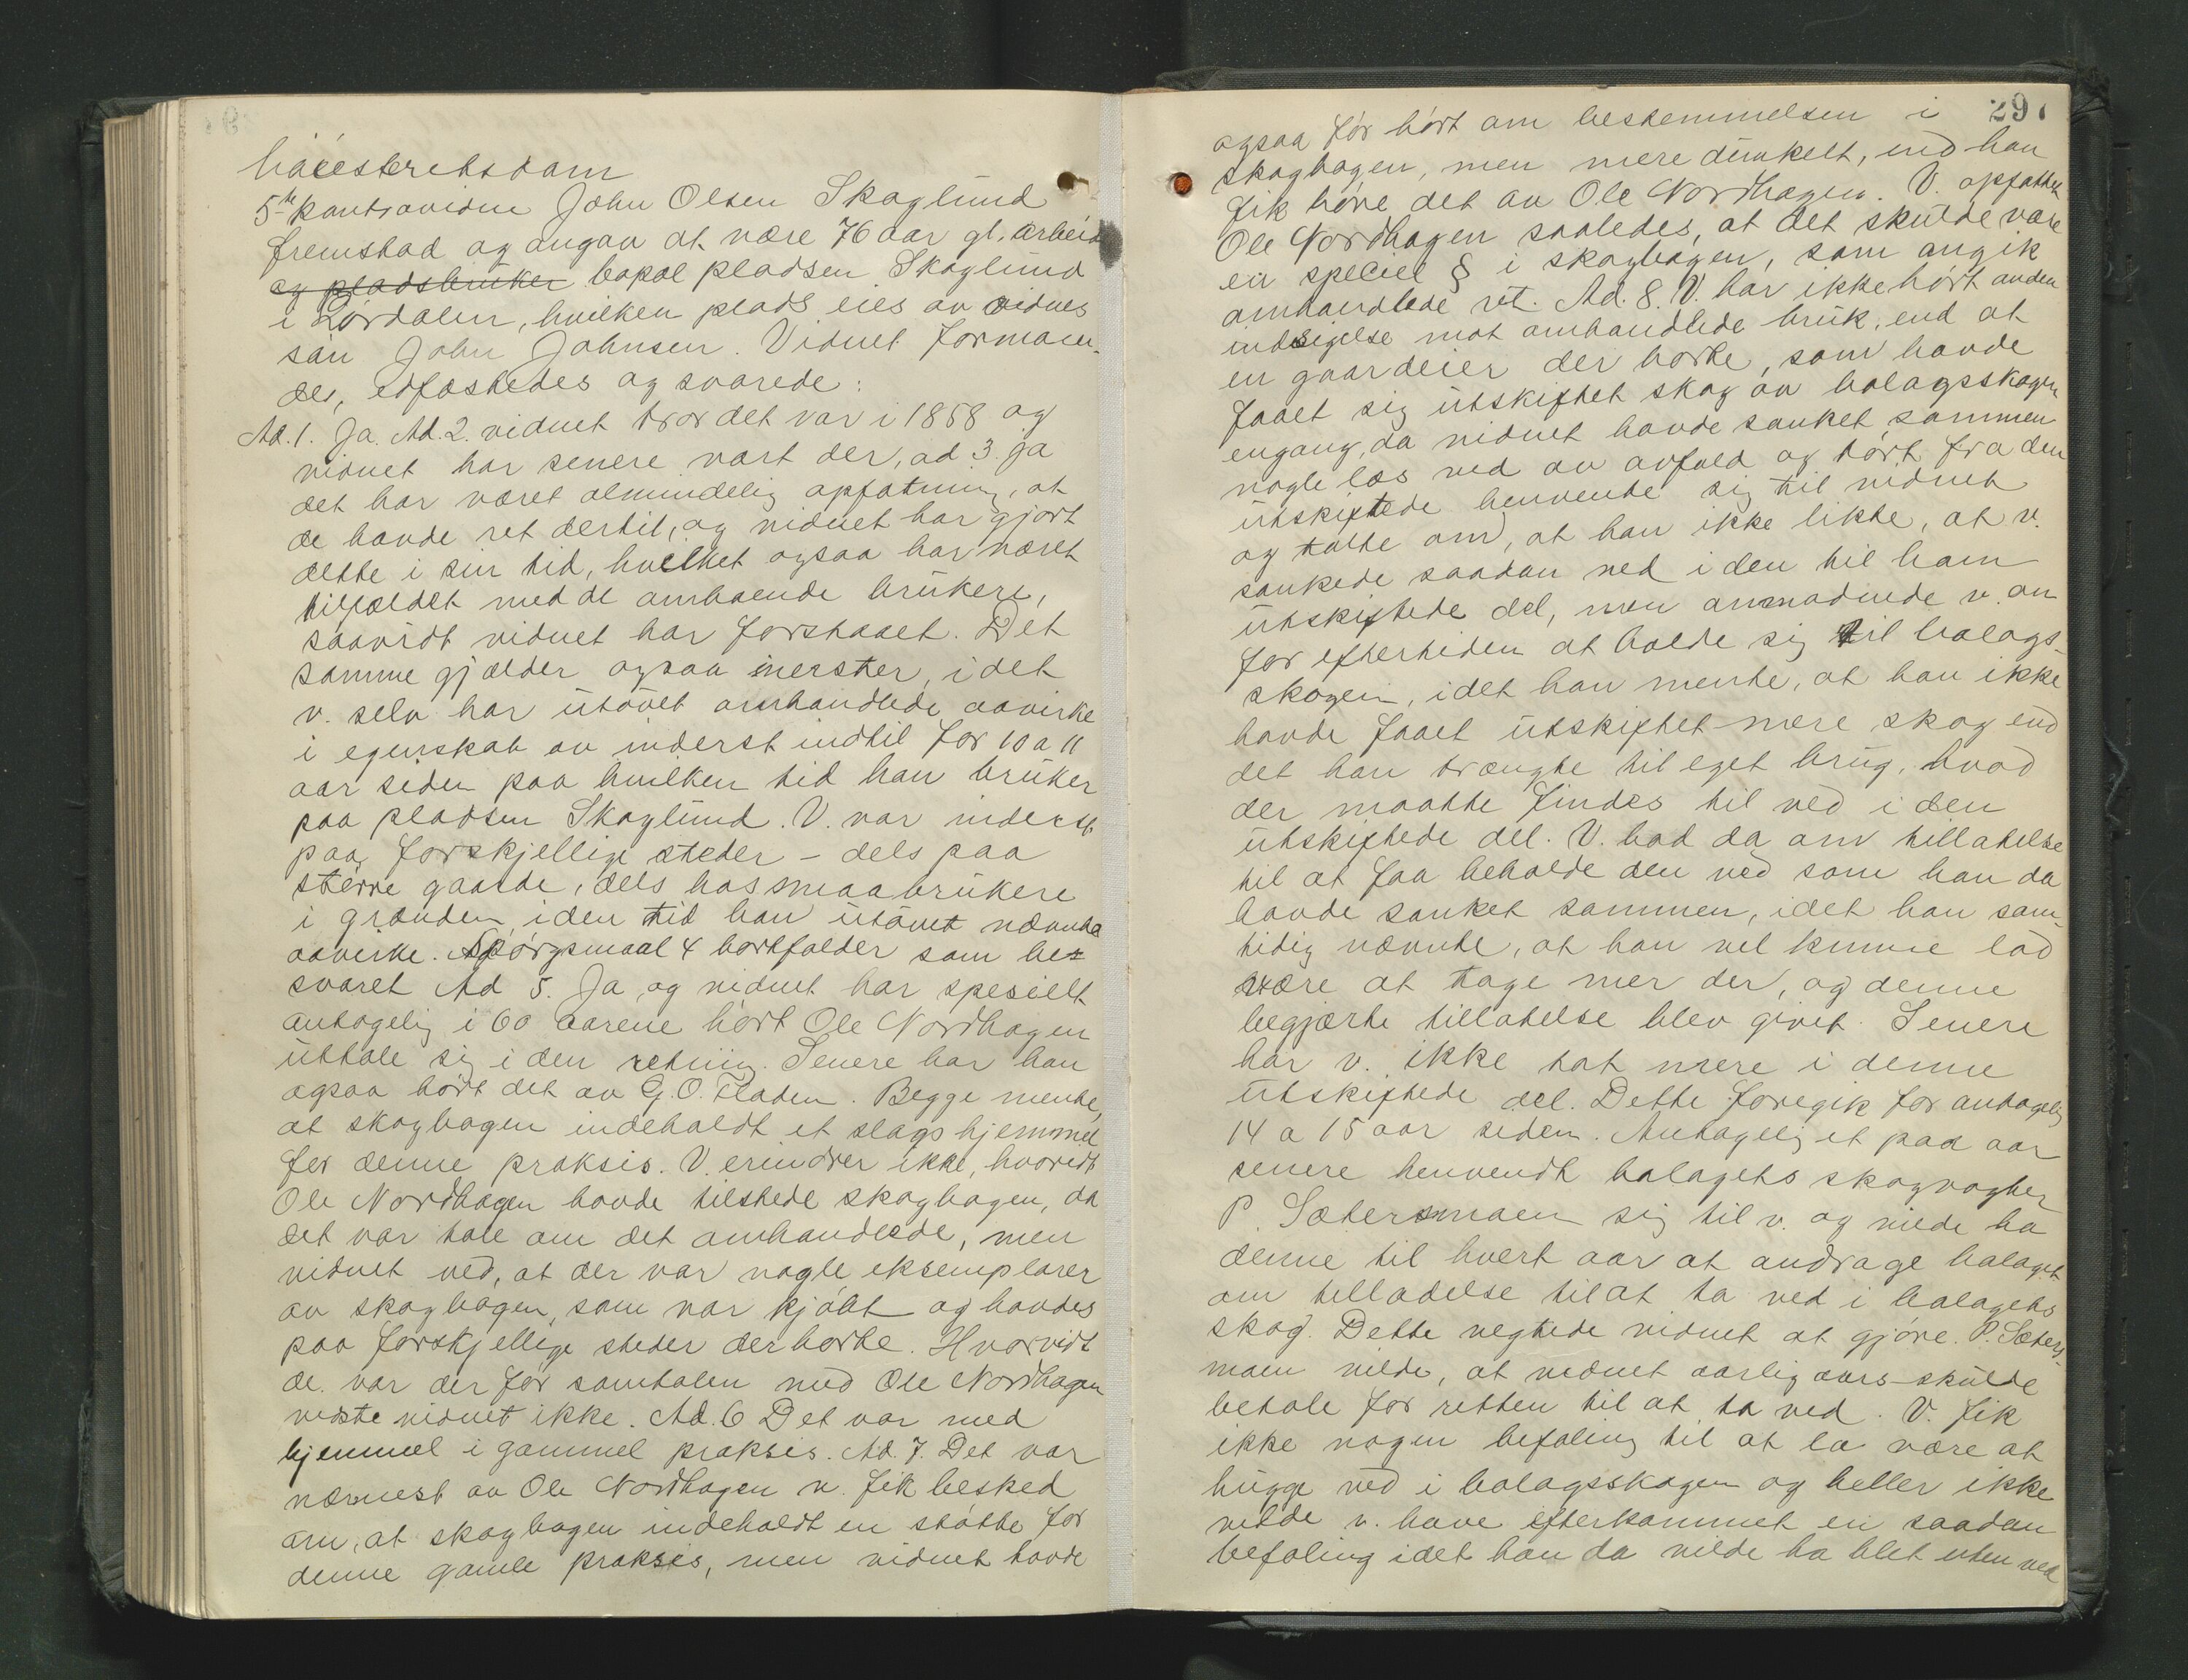 høiesteretsdom
5te kontravidne John Olsen Skoglund
fremstod og angav at være 76 aar gl. arbeid
og pladsbruker bopæl pladsen Skoglund
i Lørdalen, hvilken plads eies av vidnes
søn John Johnsen. Vidnet forman-
des, edfæstedes og svarede:
Ad. 1. Ja. Ad. 2. vidnet tror det var i 1858 og
vidnet har senere vært der, ad 3. ja
det har været almindelig opfatning, at
de havde ret dertil, og vidnet har gjort
dette i sin tid, hvilket ogsaa har været
tilfældet med de omboende brukere,
saavidt vidnet har forstaaet. Det
samme gjælder ogsaa inerster, idet
v. selv har utøvet omhandlede aavirke
i egenskab av inderst indtil for 10 a 11
aar siden paa hvilken tid han bruker
paa pladsen Skoglund. V. var inderst
paa forskjellige steder – dels paa
større gaarde, dels hos smaabrukere
i grænden, i den tid han utøvet nævnte
aavirke. Spørgsmaal 4 bortfalder som be-
svaret Ad 5. Ja, og vidnet har specielt
antagelig i 60 aarene hørt Ole Nordhagen
uttale sig i den retning. Senere har han
ogsaa hørt det av G. O. Fladen. Begge mente,
at skogbogen indeholdt et slags hjemmel
for denne praksis. V. erindrer ikke, hvorvidt
Ole Nordhagen havde tilstede skogbogen, da
det var tale om det omhandlede, men
vidnet ved, at der var nogle eksemplarer
av skogbogen, som var kjøbt og havdes
paa forskjellige steder der borte. Hvorvidt
de var der før samtalen med Ole Nordhagen
vidste vidnet ikke. Ad. 6 Det var med
hjemmel i gammel praksis. Ad. 7. Det var
nærmest av Ole Nordhagen v. fik besked
om, at skogbogen indeholdt en støtte for
denne gamle praksis, men vidnet havde
291
ogsaa før hørt om bestemmelsen i
skogbogen, men mere dunkelt, ind han
fik høre det av Ole Nordhagen. V. opfattet
Ole Nordhagen saaledes, at det skulde være
en speciel § i skogbogen, som angik
omhandlede ret. Ad. 8. V. har ikke hørt anden
indsigelse mot omhandlede bruk, end at
en gaardeier der borte, som havde
faaet sig utskiftet skog av bolagsskogen
engang, da vidnet havde sanket sammen
nogle læs ved av avfald og tørt fra den
utskiftede henvendte sig til vidnet
og talte om, at han ikke likte, at v.
sankede saadan ved i den til ham
utskiftede del, men anmodnede v. om
for eftertiden at holde sig til bolags-
skogen, idet han mente, at han ikke
havde faaet utskiftet mere skog end
det han trængte til eget brug, hvad
der maatte findes til ved i den
utskiftede del. V. bad da om tillatelse
til at faa beholde den ved som han da
havde sanket sammen, idet han sam-
tidig nævnte, at han vel kunne lad
være at tage mer der, og denne
begjærte tillatelse blev givet. Senere
har v. ikke tat mere i denne
utskiftede del. Dette foregik for antagelig
14 a 15 aar siden. Antagelig et par aar
senere henvendt bolagets skogvogter
P. Sætersmoen sig til v. og vilde ha
denne til hvert aar at andrage bolaget
om tilladelse til at ta ved i bolagets
skog. Dette vegtede vidnet at gjøre. P. Sæters-
moen vilde, at vidnet aarlig aars skulde
betale for retten til at ta ved. V. fik
ikke nogen befaling til at la være at
hugge ved i bolagsskogen og heller ikke
vilde v. have efterkommet en saadan
befaling idet han da vilde ha blet uten ved